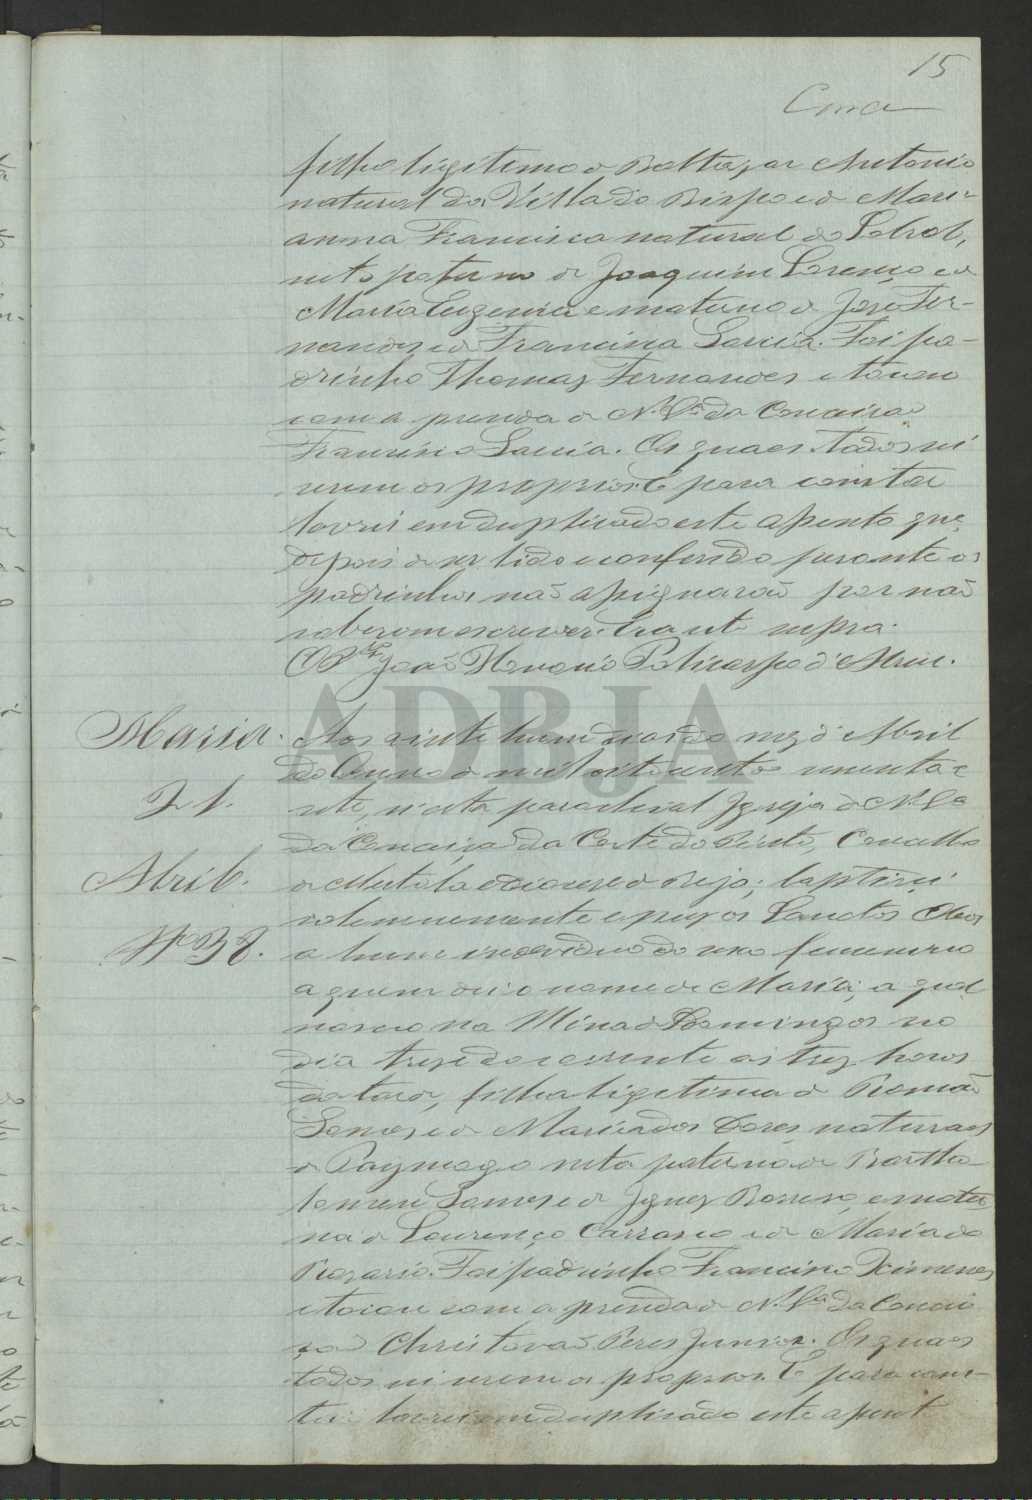 15
filho ligitimo de Baltazar Antonio
natural da Villa do Bispo e de Mari-
anna Francisca natural de Sobral,
neto paterno de Joaquim Lourenço e de
Maria Eugenia e materno de José Fer-
nandes e de Francisca Lucia. Foi pa-
drinho Thomaz Fernandes e tocou
com a prenda de N. Sra da Conceição
Francisco Lucia. Os quaes todos sei
serem os proprios. E para constar
lavrei em duplicado este assento que
depois de ser lido e conferido perante os
padrinhos não assignarão por não
saberem escrever. Era ut supra.
João Policarpo d'
ADBJA
Maria. Aos vinte hum dias do mez d'Abril
do Anno de mil oito centos e
sete, n'esta parochial Igreja de N. Sa
da Conceição da Corte do Pinto, Concelho
de Mertola e diocese de Beja, baptisei
21.
Abril.
solemnemente e puz os Sanctos Oleos
a hum individuo do sexo femenino
a quem dei o nome de Maria; a qual
nasceo na Mina de S. Domingos no
dia treze do corrente as trez horas
da tarde, filha ligitima de Romão
Gomes e de Maria das Dores, naturaes
de Paymogo neta paterna de Bartho-
lomeu Gomes e de Ignez Borrero, e mater-
na de Lourenço Carrasco e de Maria do
Rozario. Foi padrinho Francisco Ximenes
e tocou com a prenda de N. Sra da Concei-
ção Christovão Peres Junior. Os quaes
todos sei serem os proprios. E para cons-
tar lavrei em duplicado este assent